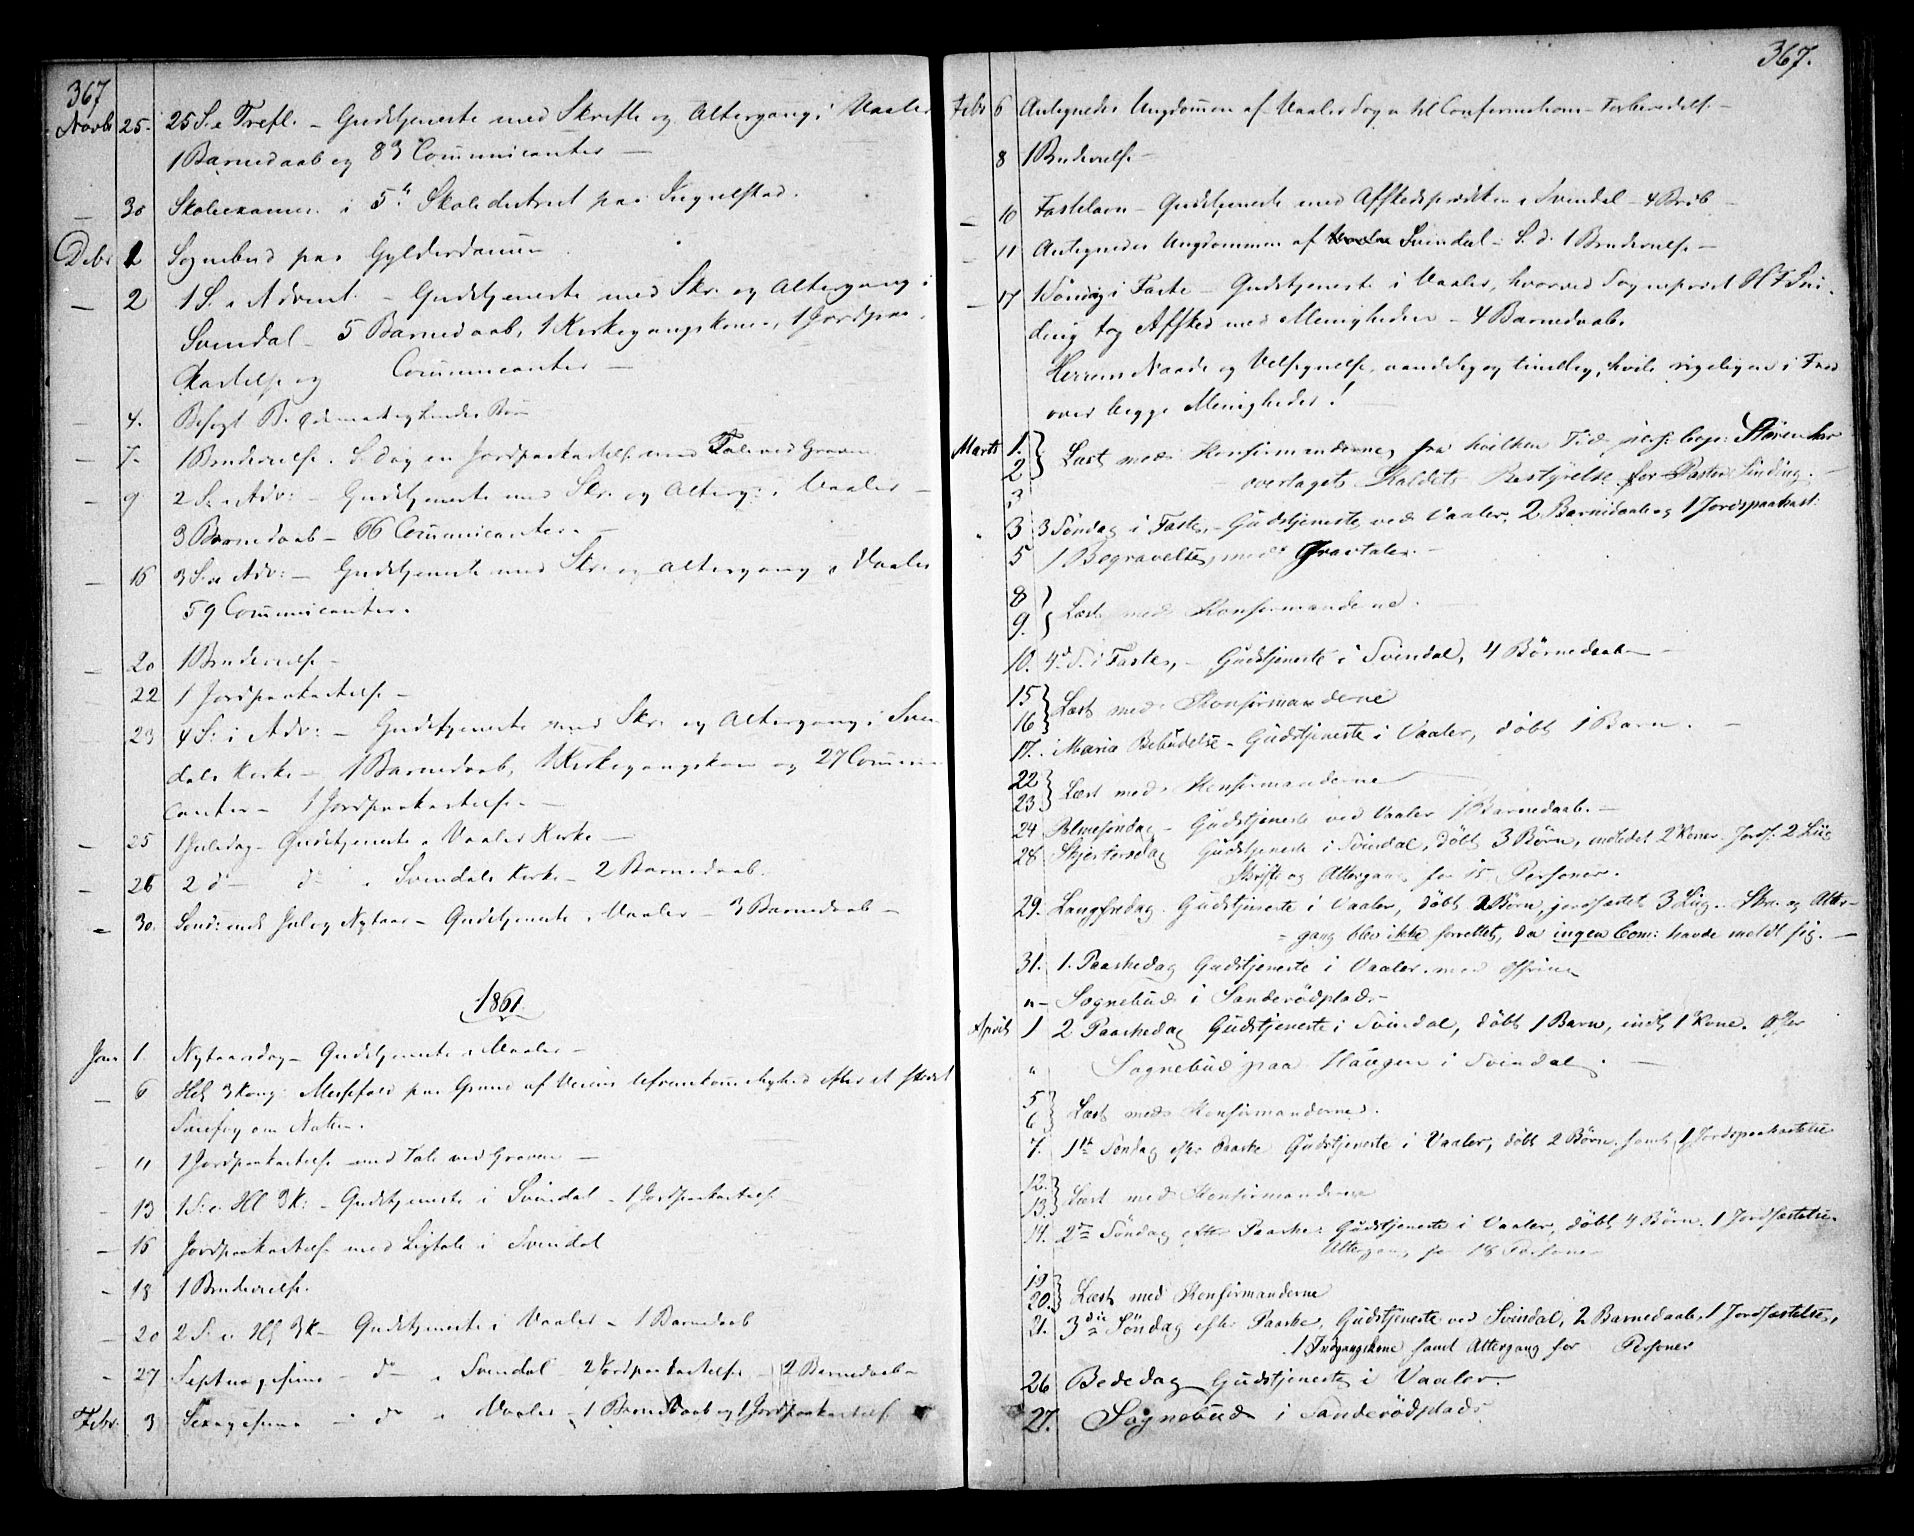 367
Novbr 25. 25 S. e Trefl. – Gudstjeneste med Skrifte og Altergang i Vaaler
1 Barnedaab og 83 Communicanter –
– 30 Skoleexamen i 5te Skoledistrict paa
Decbr 1 Sognebud paa
– 2 1 S. i Advent. – Gudstjeneste med Skr. og Altergang i
Svindal – 5 Barnedaab, 1 Kirkegangskone, 1 Jordpaa-
kastelse og Communicanter –
– 4. Besøgt
– 7. 1 Brudevielse. S. dag en Jordpaakastelse med Tale ved Graven
– 9 2 S. i Adv: – Gudstjeneste med Skr. og Alterg: i Vaaler –
3 Barnedaab – 66 Communicanter. –
– 16 3 S. i Adv: – Gudstjeneste med Skr. og Altergang i Vaaler
59 Communicanter.
– 20 1 Brudevielse –
22 1 Jordpaakastelse –
23 4 S: i Adv: – Gudstjeneste med Skr. og Altergang i Svin-
dals Kirke – 1 Barnedaab, 1 Kirkegangskone og 27 Communi-
canter – 1 Jordpaakastelse. –
– 25 1 Juledag – Gudstjeneste i Vaaler Kirke –
– 26 2 d– do i Svendals Kirke – 2 Barnedaab.
– 30. Sønd: mell Jul og Nytaar – Gudstjeneste i Vaaler – 3 Barnedaab –
1861.
Jan 1. Nytaarsdag – Gudstjeneste i Vaaler –
– 6 Hel 3 Kong: Messefald paa Grund af Veiens Ufremkommelighed efter et stærkt
Sneefog om Natten.
– 11 1 Jordpaakastelse med Tale ved Graven –
– 13 1 S. e. Hl 3 K: – Gudstjeneste i Svindal – 1 Jordpaakastelse
– 16 Jordpaakastelse med Ligtale i Svindal
– 18 1 Brudevielse.
– 20 2 S. e. Hl 3 K – Gudstjeneste i Vaaler – 1 Barnedaab
– 27 Septuagesima – do i Svendal 2 Jordpaakastelse – 2 Barnedaab –
Febr. 3 Sexagesima – do i Vaaler – 1 Barnedaab og 1 Jordpaakastelse
367.
Febr 6 Antegnedes Ungdommen af Vaaler Sogn til Confirmations-Forberedelse –
8 1 Brudevielse –
– 10 Fastelavn – Gudstjeneste med Afskedsprædiken i Svindal – 4 Brb –
– 11 Antegnedes Ungdommen af Svindal – S. d. 1 Brudevielse –
– 17 1 Søndag i Faste – Gudstjeneste i Vaaler, hvorved Sognepræst Sin-
ding tog Afsked med Menigheden – 4 Barnedaab.
Herrens Naade og Velsignelse, aandelig og timelig, hvile rigeligen i Fred
over begge Menigheder! –
Marts 1.
2 } Læst med Konfirmanderne, fra hvilken Tid pers: Cap:
3 overtaget Kaldets Bestyrelse for Pastor Sinding. –
3 3 Søndag i Faste, – Gudstjeneste ved Vaaler, 2 Barnedaab og 1 Jordspaakast:
5 1 Begravelse, med Gravtale. –
8
9. } Læst med Konfirmanderne.
10. 4de S. i Faste, – Gudstjeneste i Svindal, 4 Børnedaab –
15
16 } Læst med Konfirmanderne
17. Maria Bebudelse – Gudstjeneste i Vaaler, døbt 1 Barn. –
22
23 } Læst med Konfirmanderne
24 Palmesøndag – Gudstjeneste ved Vaaler 1 Barnedaab. –
28 Skjertorsdag Gudstjeneste i Svindal, døbt 3 Børn, indledet 2 Koner. Jordf: 2 Liig
Skrifte og Altergang for 15 Personer.
29. Langfredag. Gudstjeneste i Vaaler, døbt 2 Børn, jordfæstet 3 Liig. Skr. og Alter-
gang blev ikke forrettet, da ingen Com: havde meldt sig. –
31. 1. Paaskedag Gudstjeneste i Vaaler. med Offring
" – Sognebud i Sanderødplads –
April 1 2 Paaskedag Gudstjeneste i Svindal, døbt 1 Barn, indl. 1 Kone. Offer
" Sognebud paa Haugen i Svindal. –
5
6 } Læst med Konfirmanderne.
7. 1ste Søndag efter Paaske Gudstjeneste i Vaaler, døbt 2 Børn samt 1 Jordspaakastelse
12.
13. } Læst med Konfirmanderne
14. 2den Søndag efter Paaske. Gudstjeneste i Vaaler, døbt 4 Børn. 1 Jordfæstelse.
Altergang for 18 Personer
19
20. } Læst med Konfirmanderne
21. 3die Søndag efter Paaske, Gudstjeneste ved Svindal, 2 Barnedaab, 1 Jordfæstelse,
1 Indgangskone samt Altergang for Personer
26 Bededag Gudstjeneste i Vaaler.
27. Sognebud i Sanderødplads